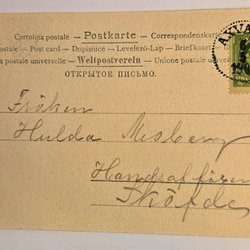 Cartolina postale – Postkarte – Correspondenzkarte
Dopisnice – Post card – Dopisnice – Levelező-Lap – Briefkaart
postale universelle – Weltpostverein – Unione postale univers
ОТКРЫТОЕ ПИСЬМО.
Fröken
Hulda
Handsaffären
Sköfde